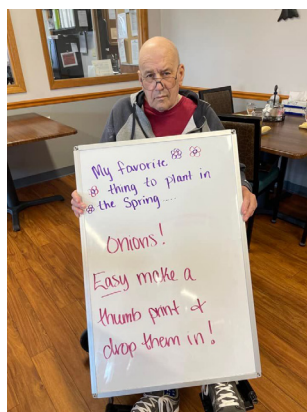 My favorite
thing to plant in
the Spring ...
Onions!
Easy make a
thumb print &
drop them in!